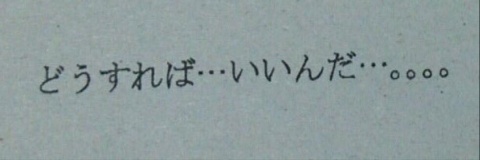 どうすれば…いいんだ…。。。。